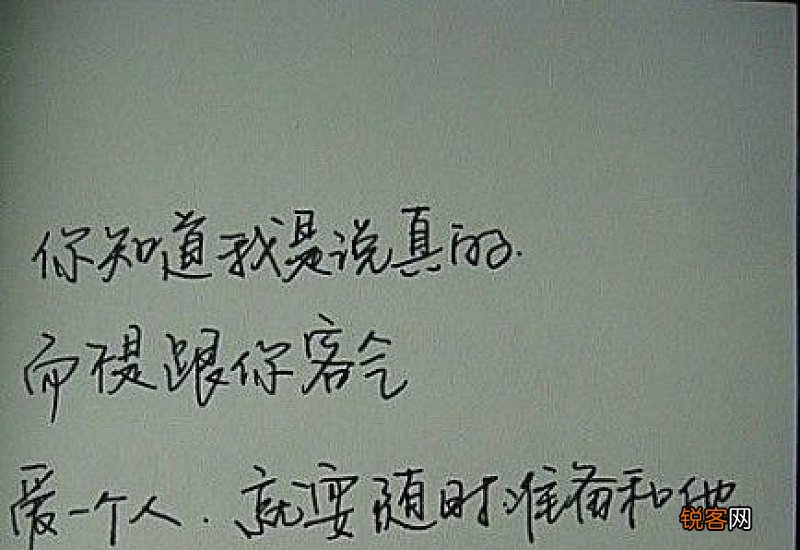 你知道我是说真的.
而不是跟你客气
爱一个人.就要随时准备和他
锐客网